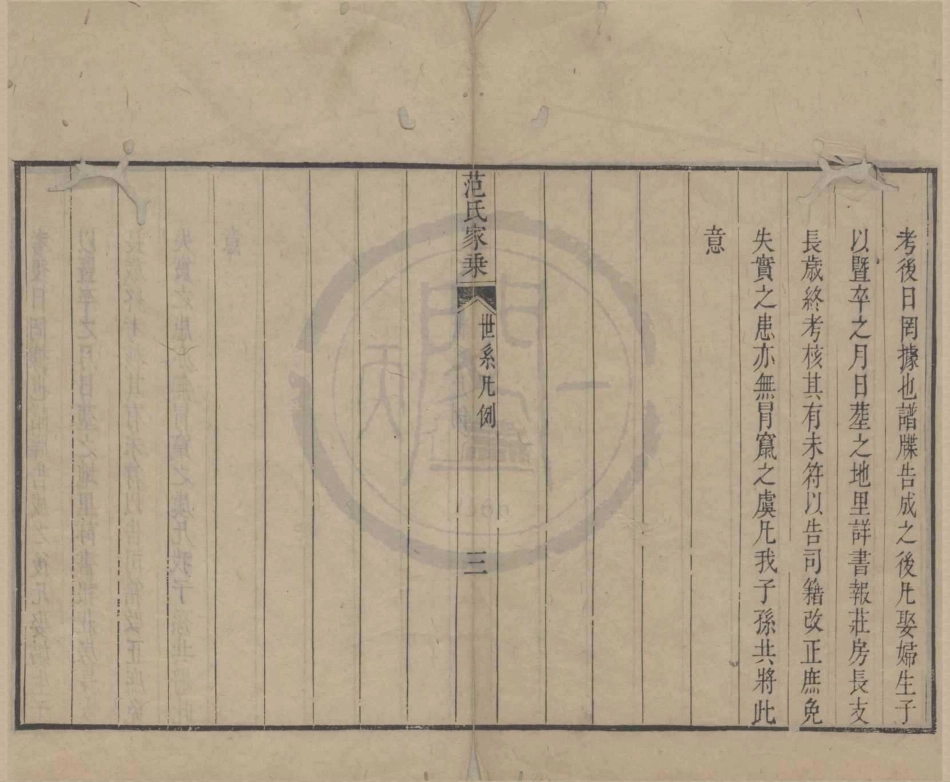 考後日罔據也譜牒告成之後凡娶婦生子
以暨卒之月日塟之地里詳書報莊房長支
長歲終考核其有未符以告司籍改正庶免
失實之患亦無冐竄之虞凡我子孫共將此
意
范氏家乘
世系凡例
三